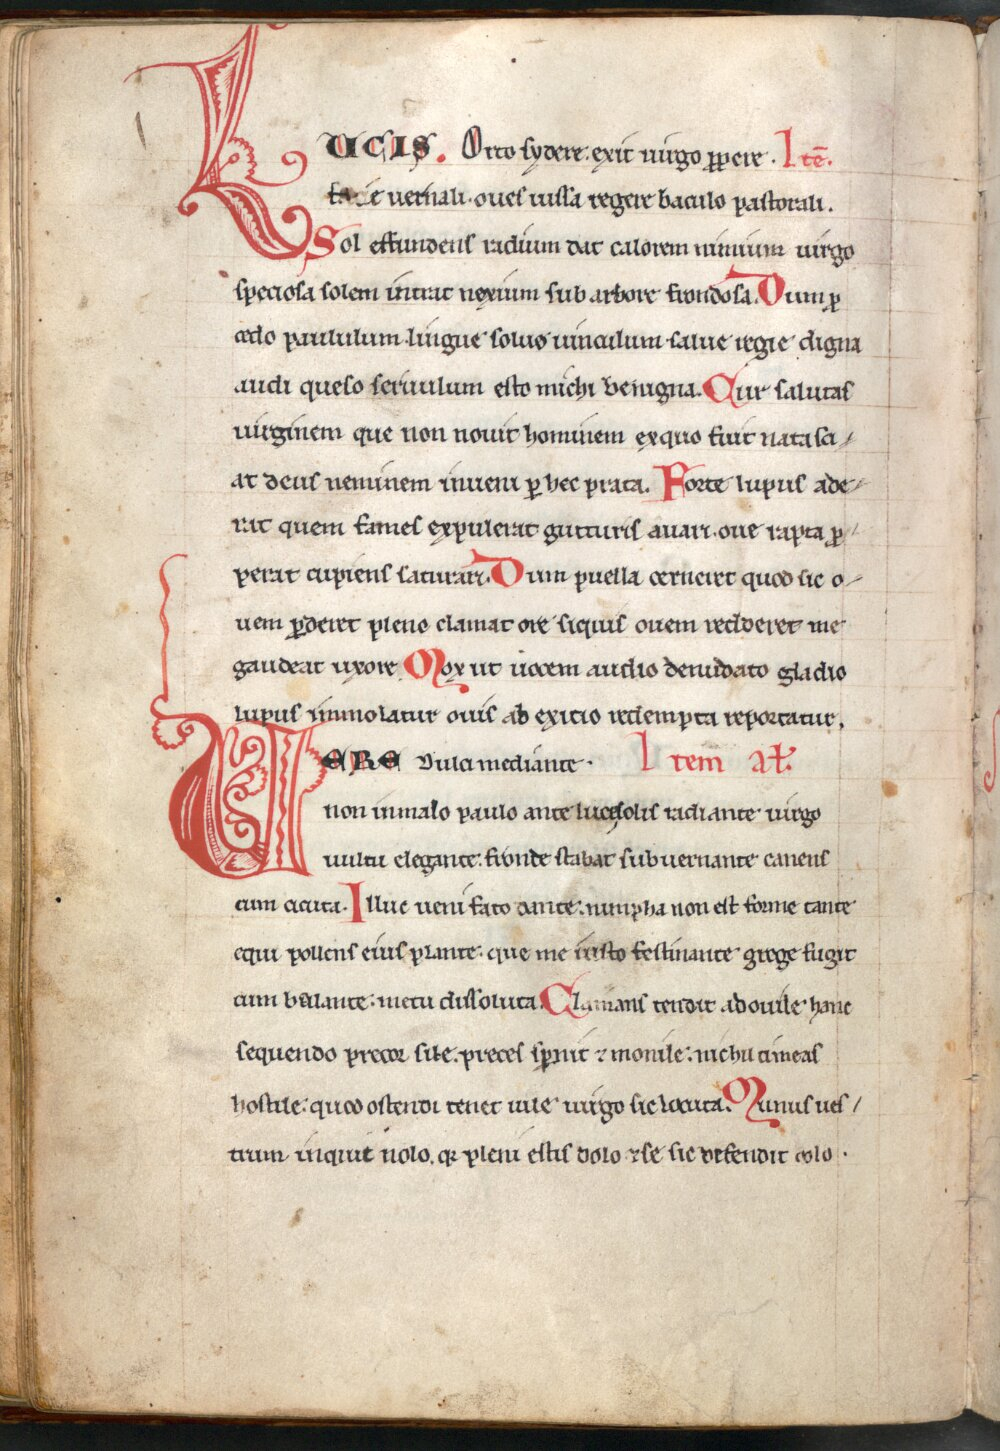 LUCIS. Orto sydere. exit uirgo ꝓpere. Itē.
facie uernali. oues iussa regere baculo pastorali.
Sol effundens radium dat calorem nimium uirgo
speciosa solem uitat noxium sub arbore frondosa. Dum ꝓ
cedo paululum. lingue soluo uinculum. salue rege digna
audi queso seruulum esto michi benigna. Cur salutas
uirginem que non nouit hominem exquo fuit nata sci
at deus neminem inueni ꝑ hec prata. Forte lupus ade
rat quem fames expulerat gutturis auari. oue rapta ꝓ
perat cupiens saturari. Dum puella cerneret quod sic o
uem ꝑderet pleno clamat ore siquis ouem redderet me
gaudeat uxore. Mox ut uocem audio denudato gladio
lupus immolatur ouis ab exitio redempta reportatur.
UERE dulci mediante. Item ał.
non in maio paulo ante luce solis radiante uirgo
uultu elegante. fronde stabat sub uernante canens
cum cicuta. Illuc ueni fato dante. nimpha non est forme tante
equi pollens eius plante. que me uiso festinante grege fugit
cum balante. metu dissoluta. Clamans tendit ad ouile hanc
sequendo precor sile. preces sp̄nit ⁊ monile. nichil timeas
hostile. quod ostendi tenet uile uirgo sic locuta. Munus ues
trum inquit nolo. qꝛ pleni estis dolo ⁊ se sic defendit colo.